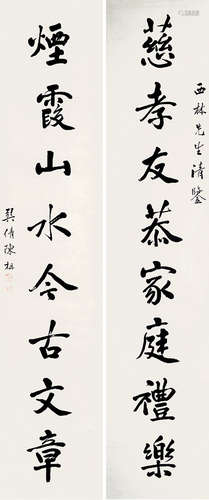 西林先生清鑒
慈孝友恭家庭禮樂
煙霞山水今古文章
倩陳